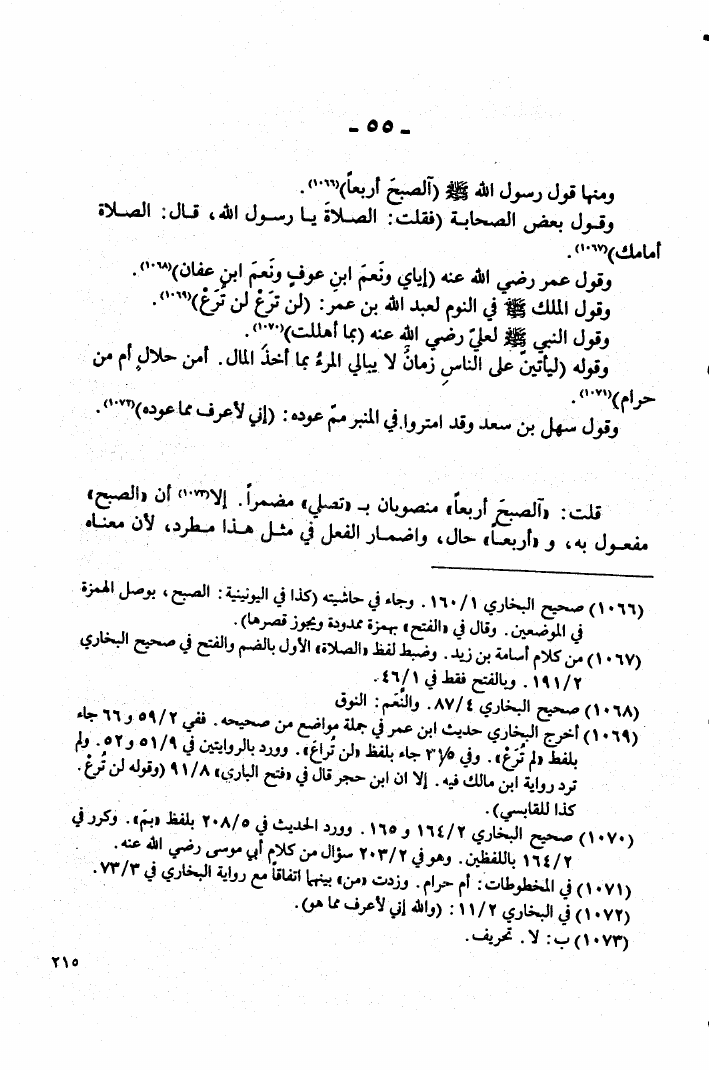 - ٥٥ -
ومنها قول رسول الله ﷺ (آلصبحَ أربعاً)(١٠٦٦).
وقول بعض الصحابة (فقلت: الصلاةَ يا رسول الله، قال: الصلاة
أمامك)(١٠٦٧).
وقول عمر رضي الله عنه (إياي ونَعمَ ابنِ عوفٍ ونَعمَ ابنِ عفان)(١٠٦٨).
وقول الملك ﷺ في النوم لعبد الله بن عمر: (لن ترَعْ لن تُرَعْ)(١٠٦٩).
وقول النبي ﷺ لعليّ رضي الله عنه (بما أهللت)(١٠٧٠).
وقوله (ليأتينّ على الناسِ زمانٌ لا يبالي المرءُ بما أخذَ المال. أمن حلالٍ أم من
حرام)(١٠٧١).
وقول سهل بن سعد وقد امتروا في المنبر ممّ عوده: (إني لأعرف مما عوده)(١٠٧٢).
قلت: «آلصبحَ أربعاً» منصوبان بـ «تصلي» مضمراً. إلا(١٠٧٣) أن «الصبح»
مفعول به، و «أربعاً» حال، واضمار الفعل في مثل هذا مطرد، لأن معناه
(١٠٦٦) صحيح البخاري ١/١٦٠. وجاء في حاشيته (كذا في اليونينية: الصبح، بوصل الهمزة
في الموضعين. وقال في «الفتح» بهمزة ممدودة ويجوز قصرها).
(١٠٦٧) من كلام أسامة بن زيد. وضبط لفظ «الصلاة» الأول بالضم والفتح في صحيح البخاري
٢/١٩١. وبالفتح فقط في ١/٤٦.
(١٠٦٨) صحيح البخاري ٤/٨٧. والنَّعَم: النوق
(١٠٦٩) أخرج البخاري حديث ابن عمر في جملة مواضع من صحيحه. ففي ٢/٥٩ و ٦٦ جاء
بلفظ «لم تُرَعْ». وفي ٥/٣١ جاء بلفظ «لن تُراعَ». وورد بالروايتين في ٩/٥١ و ٥٢. ولم
ترد رواية ابن مالك فيه. إلا ان ابن حجر قال في «فتح الباري» ٨/٩١ (وقوله لن تُرعْ.
كذا للقابسي).
(١٠٧٠) صحيح البخاري ٢/١٦٤ و ١٦٥. وورد الحديث في ٥/٢٠٨ بلفظ «بمَ». وكرر في
٢/١٦٤ باللفظين. وهو في ٢/٢٠٣ سؤال من كلام أبي موسى رضي الله عنه.
(١٠٧١) في المخطوطات: أم حرام. وزدت «من» بينهما اتفاقاً مع رواية البخاري في ٣/٧٣.
(١٠٧٢) في البخاري ٢/١١: (والله إني لأعرف مما هو).
(١٠٧٣) ب: لا. تحريف.
٢١٥